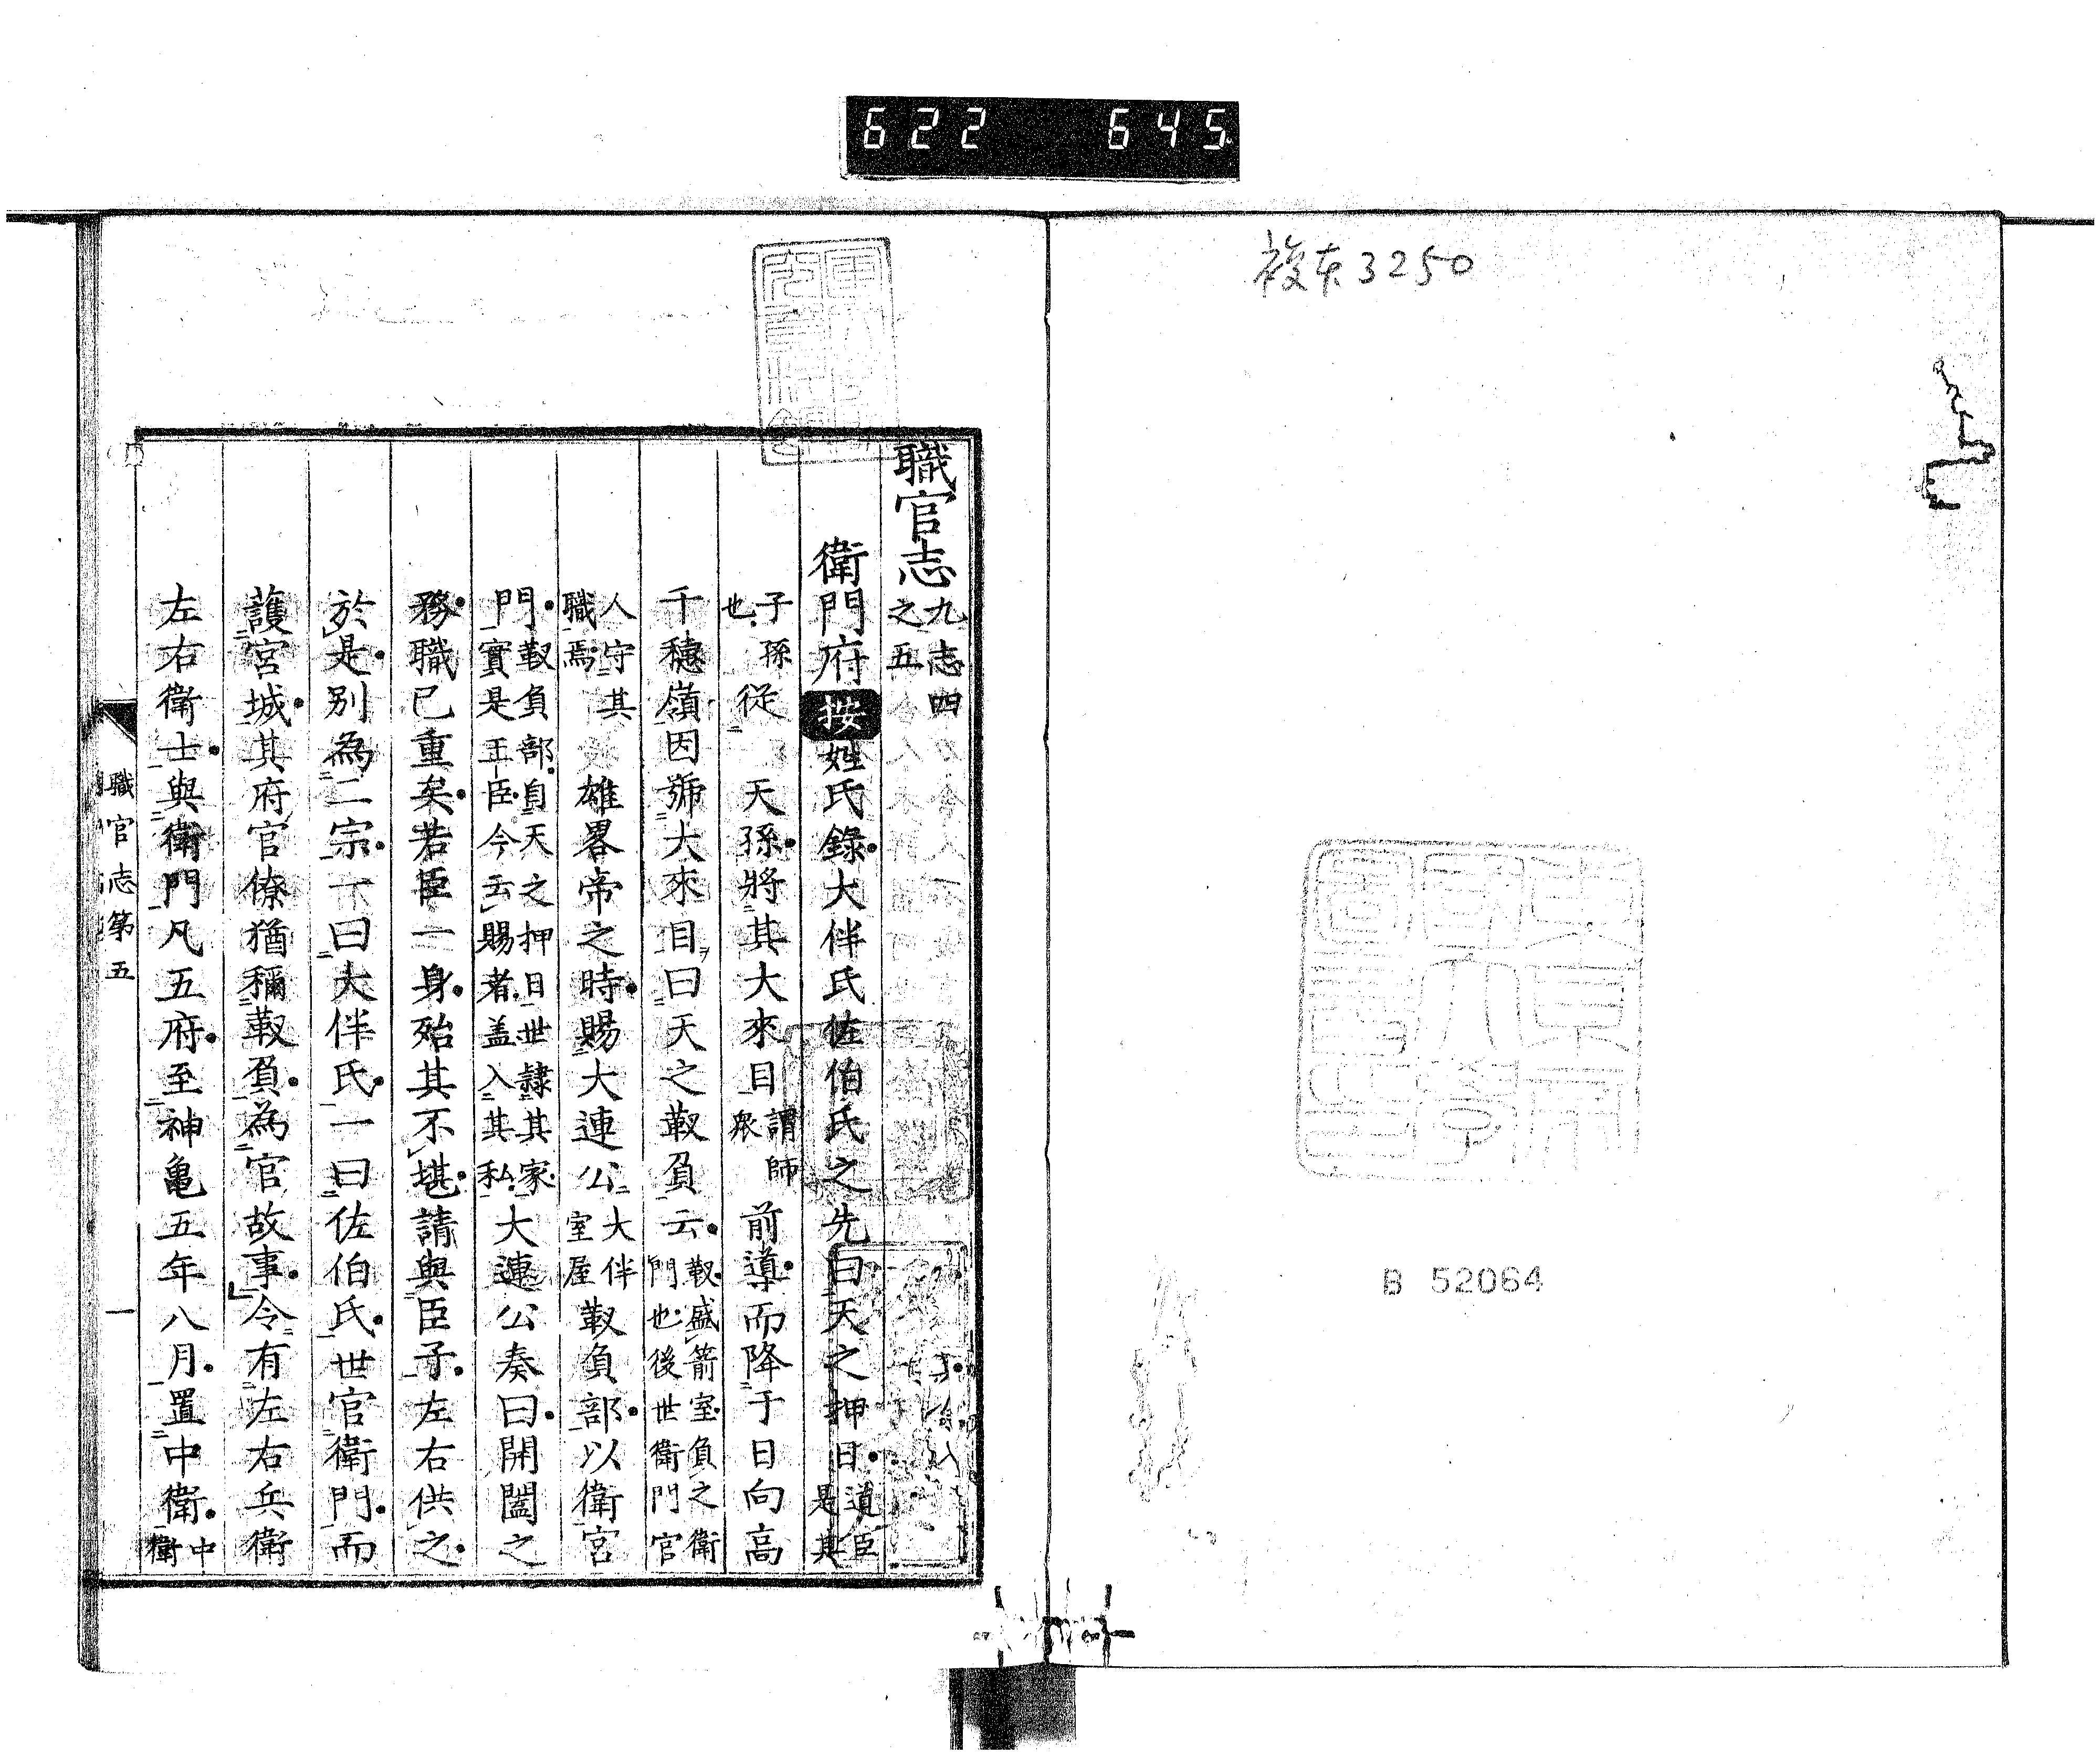 622 645
複本3250
東京帝國大學圖書印
B 52064
職官志九志四之五
衛門府按姓氏錄大伴氏佐伯氏之先曰天之押日道臣是其
子孫也從天孫將其大來目謂師衆前導而降于日向高
千穗嶺因號大來目曰天之靫負云靫盛箭室負之衛門也後世衛門官
人守其職焉雄畧帝之時賜大連公大伴室屋靫負部以衛宮
門靫負部自天之押日世隷其家實是王臣今云賜者盖入其私大連公奏曰開闔之
務職已重矣若臣一身殆其不堪請與臣子左右供之
於是別為二宗一曰大伴氏一曰佐伯氏世官衛門而
護宮城其府官僚猶稱靫負為官故事令有左右兵衛
左右衛士與衛門凡五府至神亀五年八月置中衛中衛
職官志第五
一